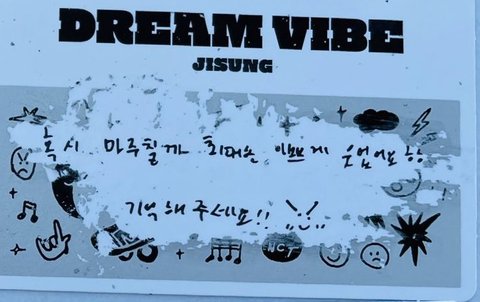 DREAM VIBE
JISUNG
혹시 마주칠까 최대한 이쁘게
기억해주세요!!
NCT